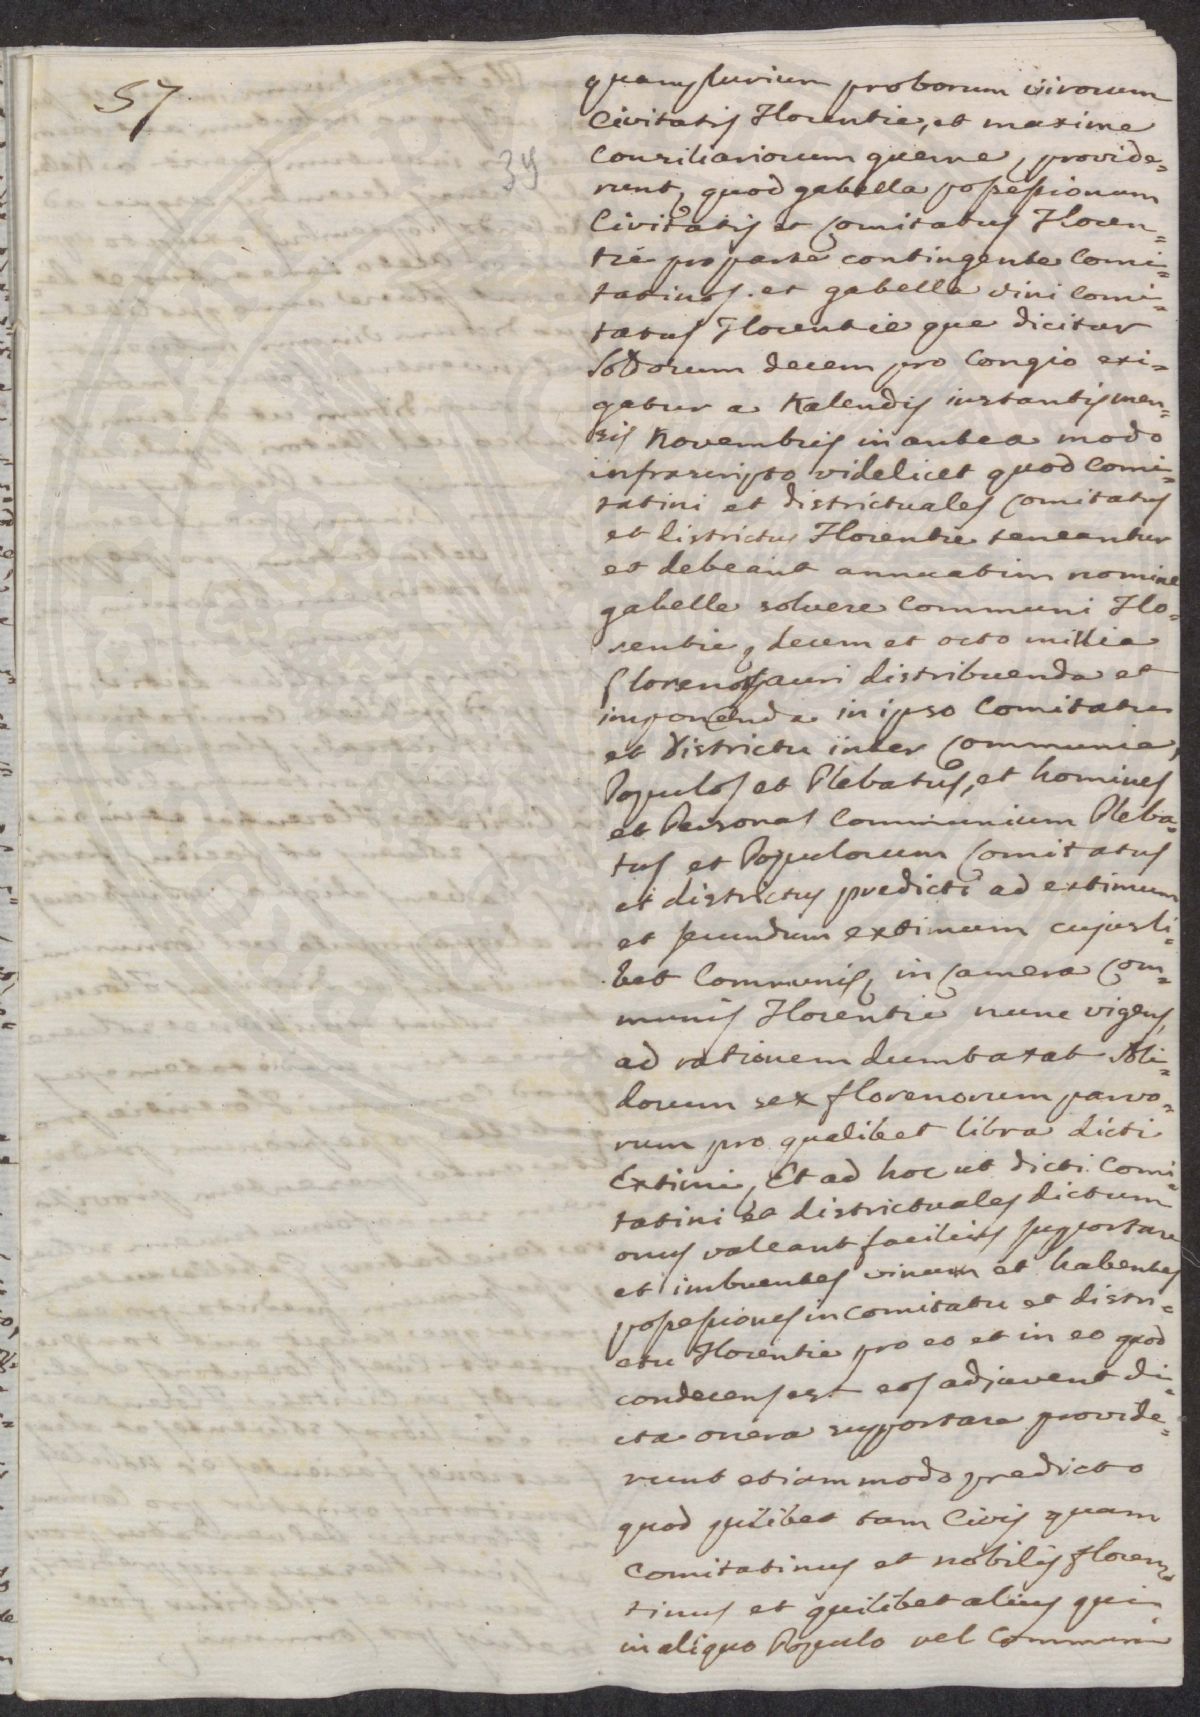 57
39
quamplurium proborum virorum
Civitatis Florentie, et maxime
Consiliariorum guerre, provide=
runt, quod gabella possessionum
Civitatis et Comitatus Floren=
tie pro parte contingente Comi=
tatinos. et gabella vini Comi=
tatus Florentie que dicitur
Soldorum decem pro Congio exi=
gatur a Kalendis instantis men=
sis Novembris in antea modo
infrascripto videlicet quod Comi=
tatini et districtuales Comitatus
et districtus Florentie teneantur
et debeant annuatim nomine
gabelle solvere Communi Flo=
rentie, decem et octo millia
florenos auri distribuenda et
imponenda in ipso Comitatu
et districtu inter Communia,
Populos et Plebatus, et homines
et Personas Communium Pleba=
tus et Populorum Comitatus
et districtus predicti ad extimum
et secundum extimum cujusli=
bet Communis, in Camera Com=
munis Florentie nunc vigens,
ad rationem dumtaxat Soli=
dorum sex florenorum parvo=
rum pro qualibet libra dicti
Extimi, Et ad hoc ut dicti Comi=
tatini et districtuales dictum
onus valeant facilius supportare
et imbuentes vinum et habentes
possessiones in Comitatu et distri=
ctu Florentie pro eo et in eo quod
condecens est eos adjuvent di=
cta onera supportare provide=
runt etiam modo predicto
quod quilibet tam Civis quam
Comitatinus et nobilis floren=
tinus et quilibet alius qui
in aliquo Populo vel Communi